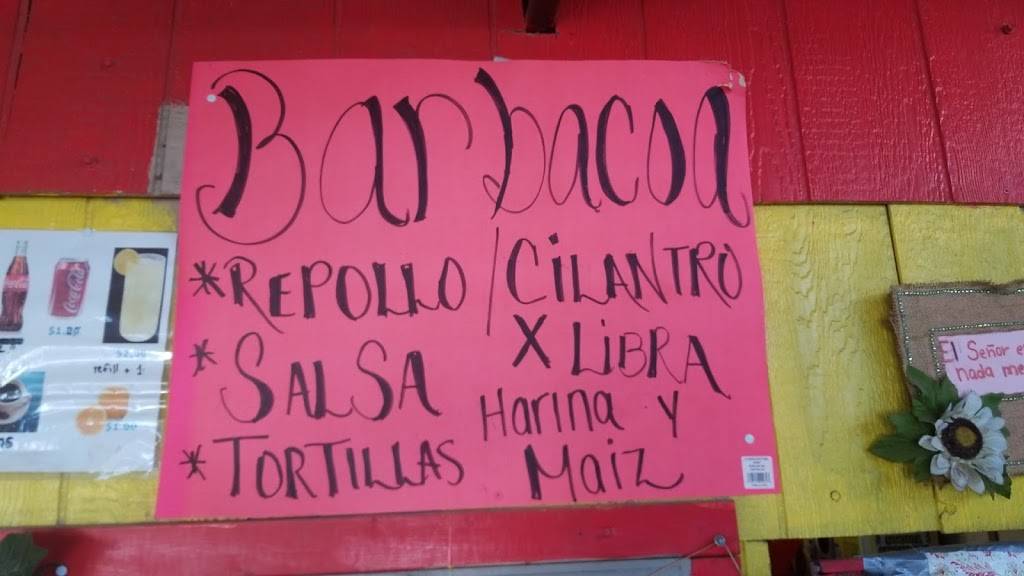 Barbacoa
*REPOLLO / CILANTRO
*SALSA X LIBRA
*TORTILLAS Harina y
Maiz
Coca-Cola
$1.25
$2.00
refill + 1
$1.00
El Señor e
nada me